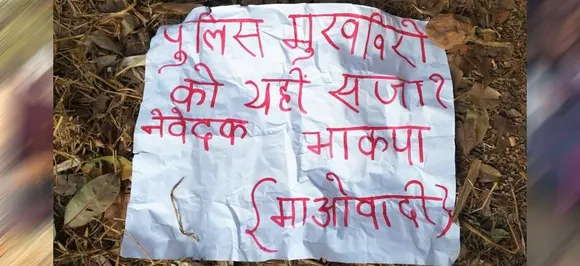 पुलिस मुखबिरी
को यही सजा?
नेवेदक भाकपा
{माओवादी}